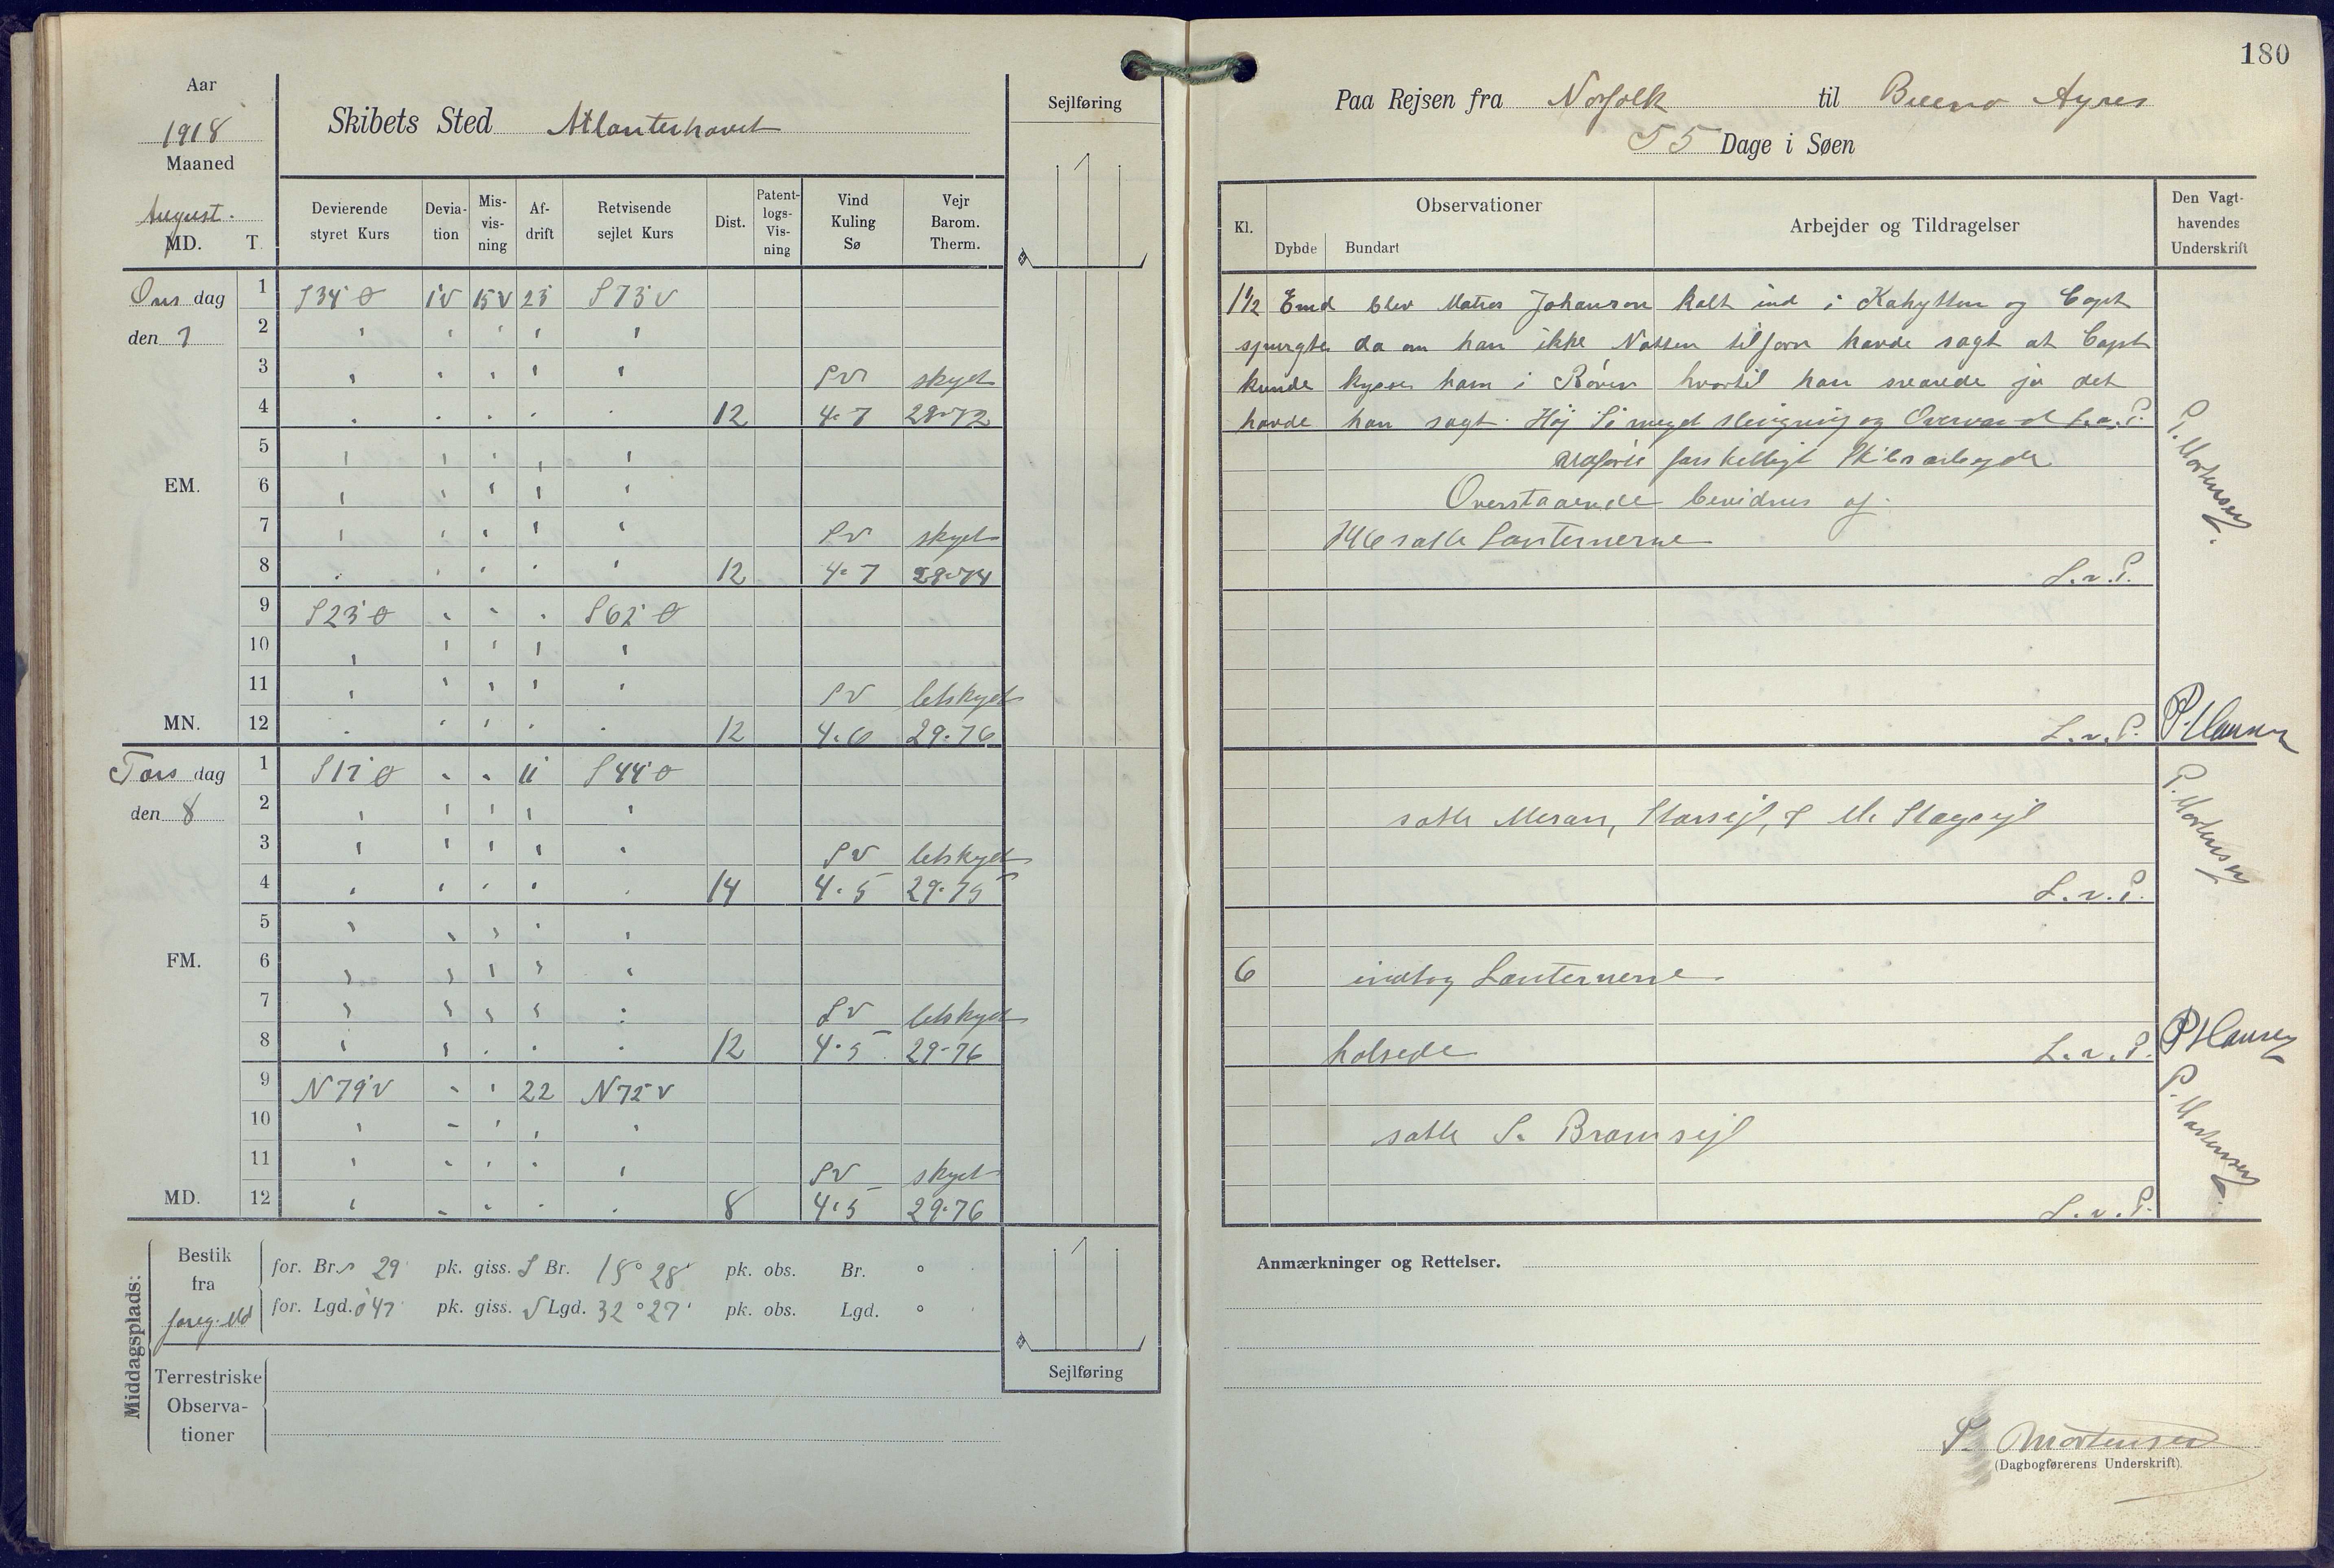 Aar
1918
Maaned
August.
Skibets Sted Atlanterhavet
Sejlføring
MD. T.
Devierende styret Kurs
Devia-tion
Mis-vis-ning
Af-drift
Retvisende sejlet Kurs
Dist.
Patent-logs-Vis-ning
Vind Kuling Sø
Vejr Barom. Therm.
Ons dag 1 S34°Ø 1V 15V 23 S73V
den 7 2 " " " " "
3 " " " " " SV skyet
4 " " " " " 12 4-7 29-72
5 " " " " "
EM. 6 " " " " "
7 " " " " " SV skyet
8 " " " " " 12 4-7 29-74
9 S23°Ø " " " S62°Ø
10 " " " " "
11 " " " " " SV letskyet
MN. 12 " " " " " 12 4-6 29-76
Tors dag 1 S17°Ø " " 11 S44°Ø
den 8 2 " " " " "
3 " " " " " SV letskyet
4 " " " " " 14 4-5 29-75
5 " " " " "
FM. 6 " " " " "
7 " " " " " SV letskyet
8 " " " " " 12 4-5 29-76
9 N79°V " " 22 N72°V
10 " " " " "
11 " " " " " SV skyet
MD. 12 " " " " " 8 4-5 29-76
Middagsplads:
Bestik fra foreg. Md
for. Br. 29 pk. giss. S Br. 15° 28' pk. obs. Br. °
for. Lgd. 047 pk. giss. V Lgd. 32° 27' pk. obs. Lgd. °
Terrestriske Observa-tioner
Sejlføring
180
Paa Rejsen fra Norfolk til Bueno Ayres
55 Dage i Søen
Kl. Observationer Arbejder og Tildragelser
Dybde Bundart
Den Vagt-havendes Underskrift
1½ Emd blev Matros Johanson kalt ind i Kahytten og Capt
spurgte da om han ikke Natten tilforn havde sagt at Capt
kunde kysse ham i Røven hvortil han svarede ja det
havde han sagt. Høj Sø meget slingring og Overvand L.v.P.
Udførte forskelligt Skibsarbejde
P. Mortensen.
Overstaaende bevidnes af
Kl 6 satte Lanternerne
L.v.P.
L.v.P. P Hansen
satte Mesan, Storsejl, & M. Stagsejl
P. Mortensen
L.v.P.
6 indtog Lanternerne.
halsede L.v.P. P Hansen
satte S. Bramsejl
P. Mortensen.
L.v.P.
Anmærkninger og Rettelser.
Mortensen
(Dagbogførerens Underskrift).